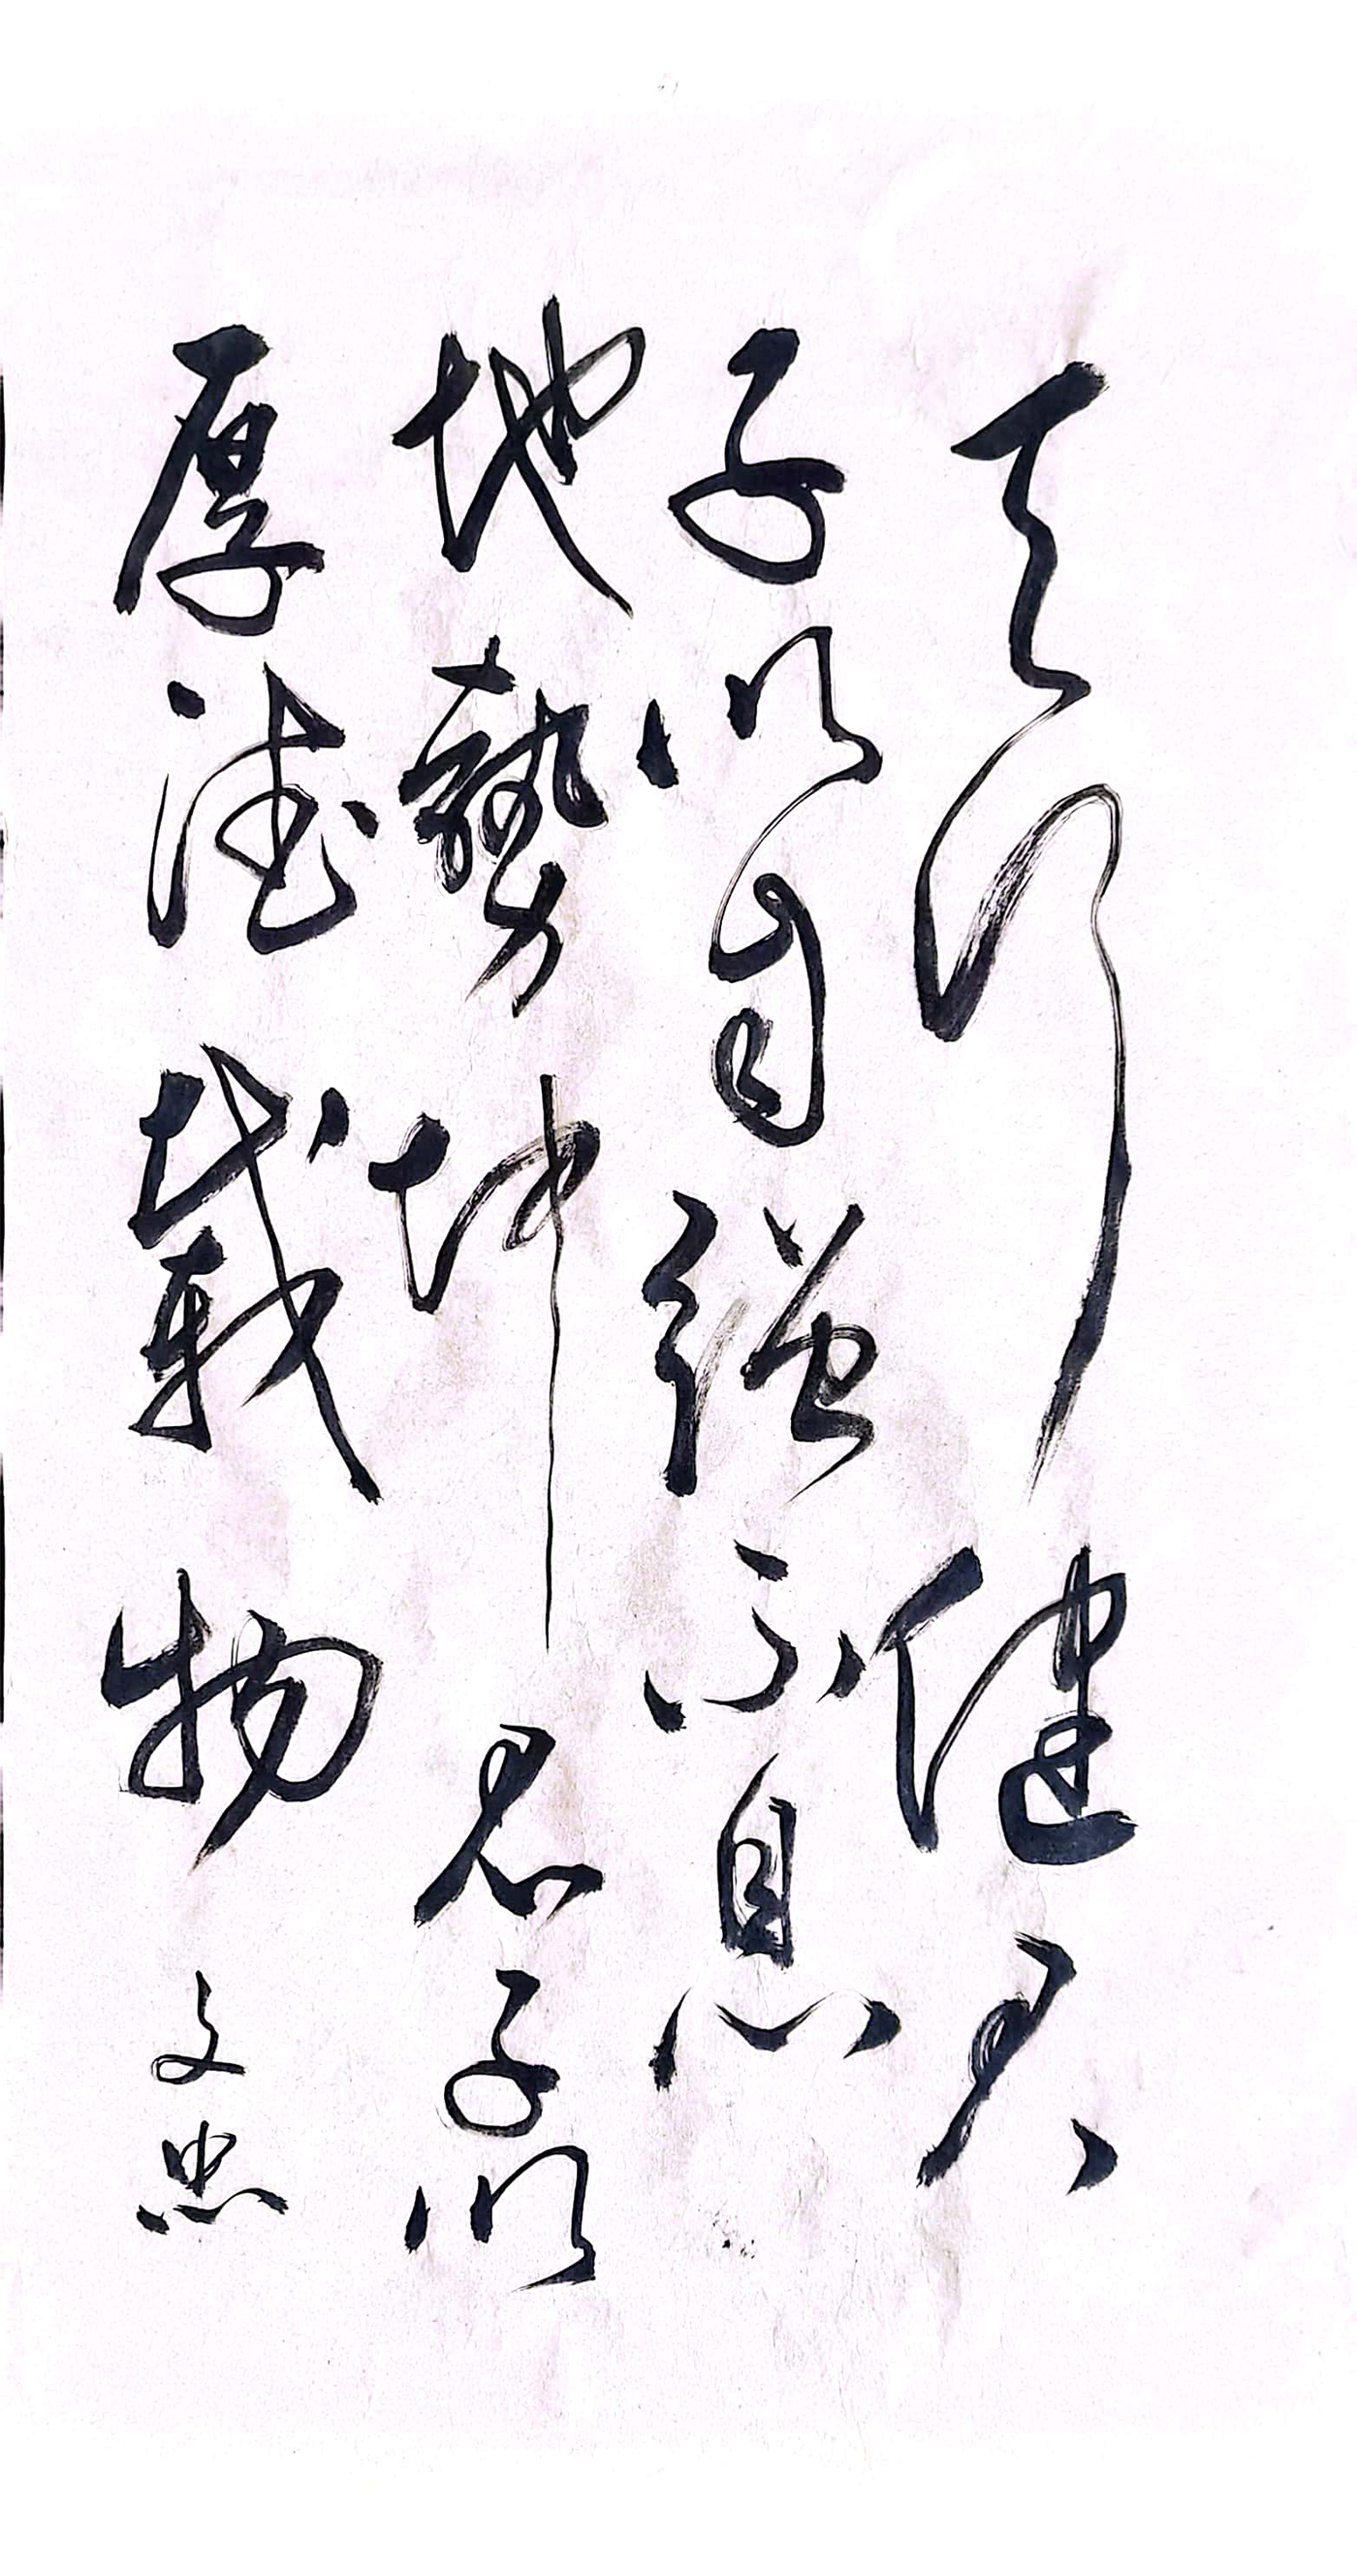 天行健君
子以自强不息
地勢坤君子以
厚德載物 文忠